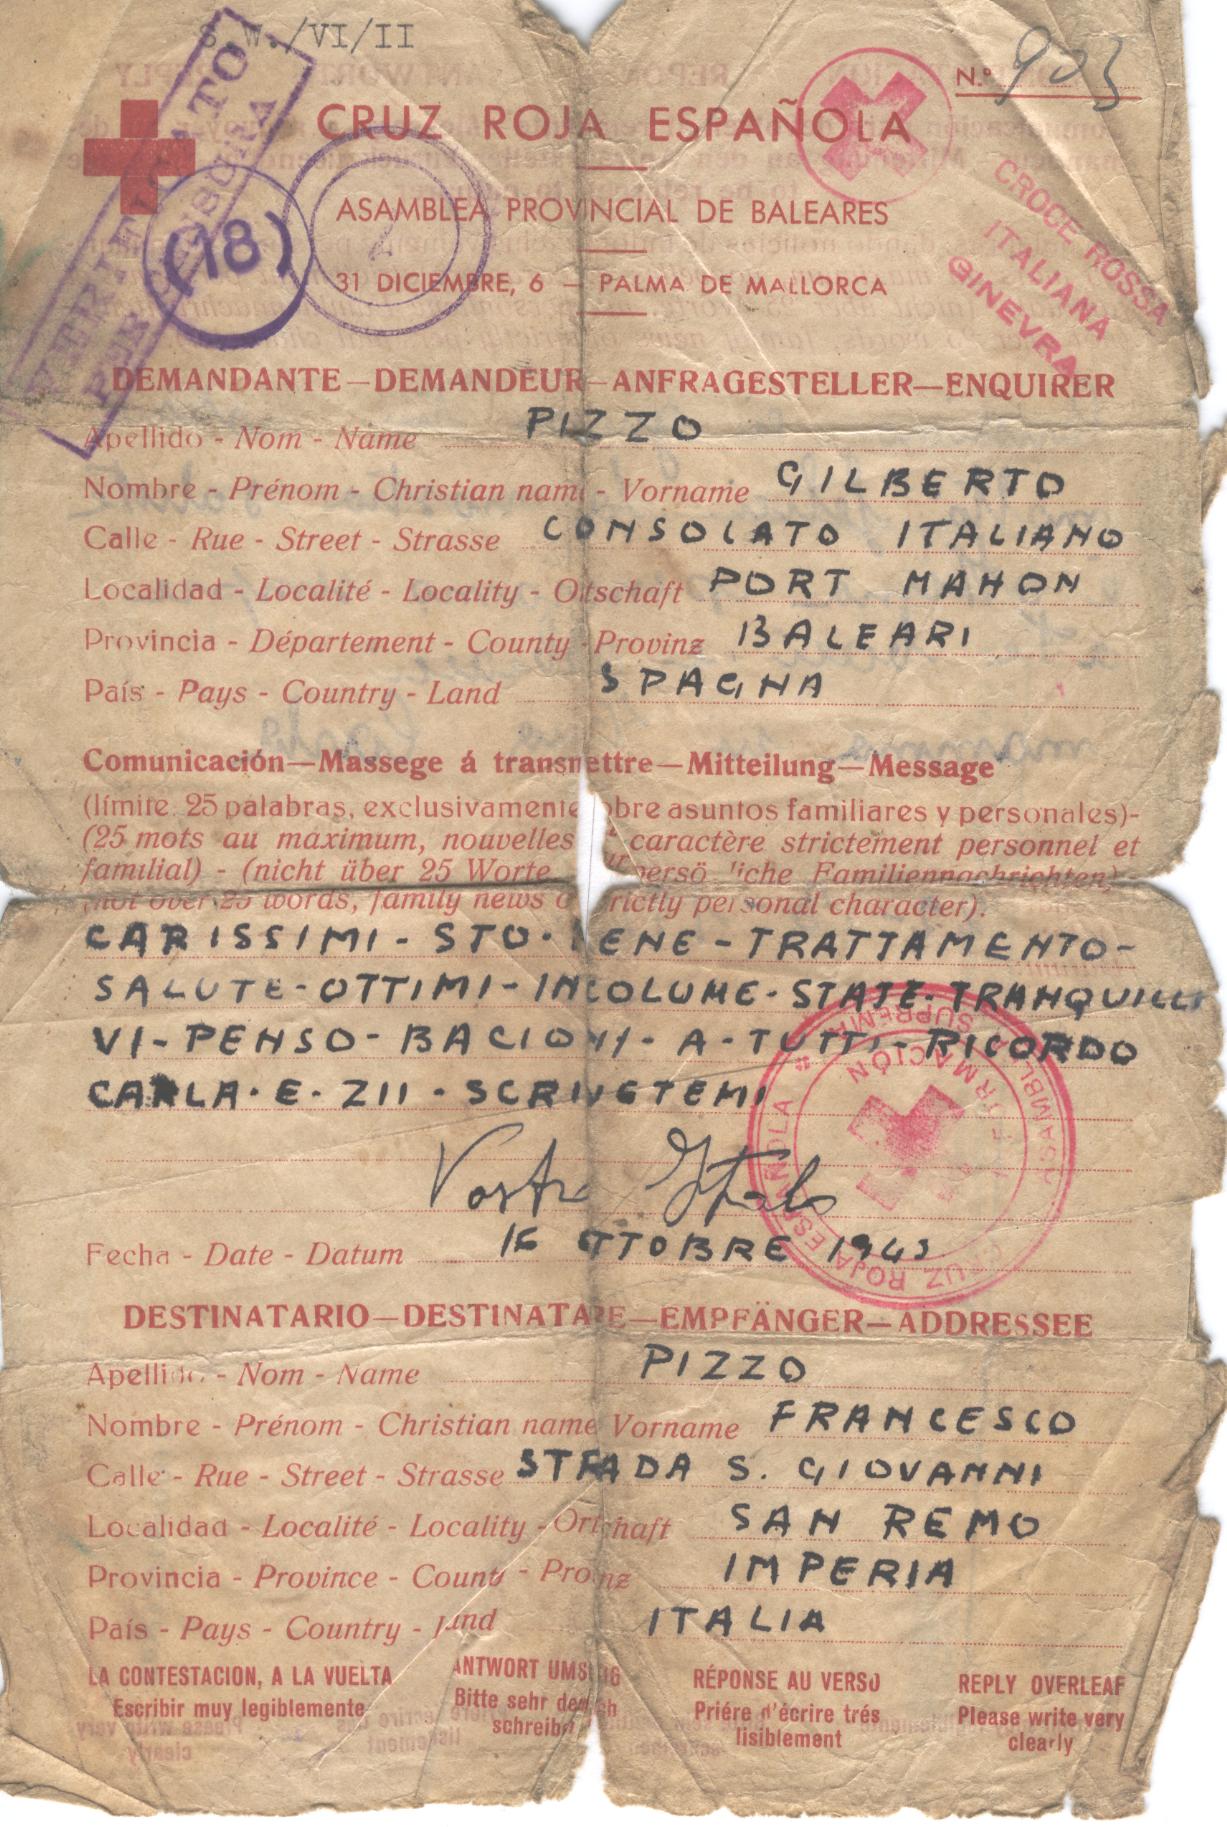 S.W./VI/II
N.º 903
CRUZ ROJA ESPAÑOLA
ASAMBLEA PROVINCIAL DE BALEARES
31 DICIEMBRE, 6 — PALMA DE MALLORCA
VERIFICATO
PER CENSURA
(18)
CROCE ROSSA
ITALIANA
GINEVRA
DEMANDANTE—DEMANDEUR—ANFRAGESTELLER—ENQUIRER
Apellido - Nom - Name PIZZO
Nombre - Prénom - Christian name - Vorname GILBERTO
Calle - Rue - Street - Strasse CONSOLATO ITALIANO
Localidad - Localité - Locality - Ortschaft PORT MAHON
Provincia - Département - County - Provinz BALEARI
País - Pays - Country - Land SPAGNA
Comunicación—Massege á transmettre—Mitteilung—Message
(límite 25 palabras, exclusivamente sobre asuntos familiares y personales)-
(25 mots au maximum, nouvelles caractère strictement personnel et
familial) - (nicht über 25 Worte persönliche Familiennachrichten)
(not over 25 words, family news of strictly personal character).
CARISSIMI - STO - BENE - TRATTAMENTO -
SALUTE - OTTIMI - INCOLUME - STATE - TRANQUILLI
VI - PENSO - BACIONI - A - TUTTI - RICORDO
CARLA - E - ZII - SCRIVETEMI
Vostro
Fecha - Date - Datum 16 OTTOBRE 1943
CRUZ ROJA ESPAÑOLA * ASAMBLEA SUPREMA *
INFORMACIÓN
DESTINATARIO—DESTINATAIRE—EMPFÄNGER—ADDRESSEE
Apellido - Nom - Name PIZZO
Nombre - Prénom - Christian name Vorname FRANCESCO
Calle - Rue - Street - Strasse STRADA S. GIOVANNI
Localidad - Localité - Locality - Ortschaft SAN REMO
Provincia - Province - County - Provinz IMPERIA
País - Pays - Country - Land ITALIA
LA CONTESTACION, A LA VUELTA ANTWORT UMSEITIG RÉPONSE AU VERSO REPLY OVERLEAF
Escribir muy legiblemente Bitte sehr deutlich schreiben Priére d'écrire trés lisiblement Please write very clearly